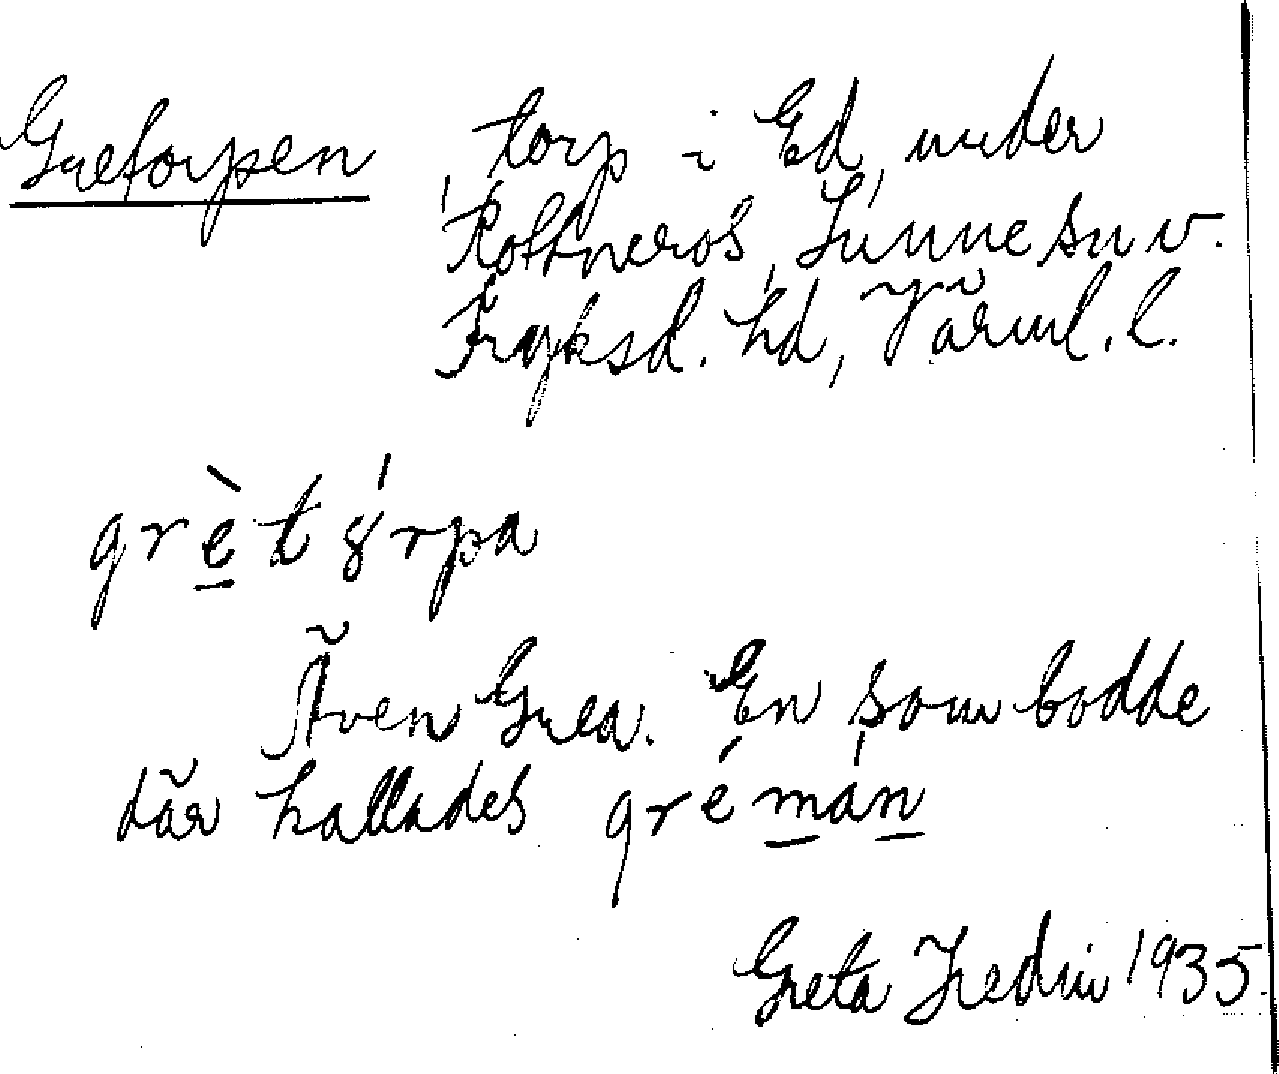 Gretorpen, torp i Ed, under
Rottneros, Sunne sn v.
Fryksd. hd, Värml. l.
grètṓrpa
Även Grea. En som bodde
där kallades grémán
Greta Hedin 1935.